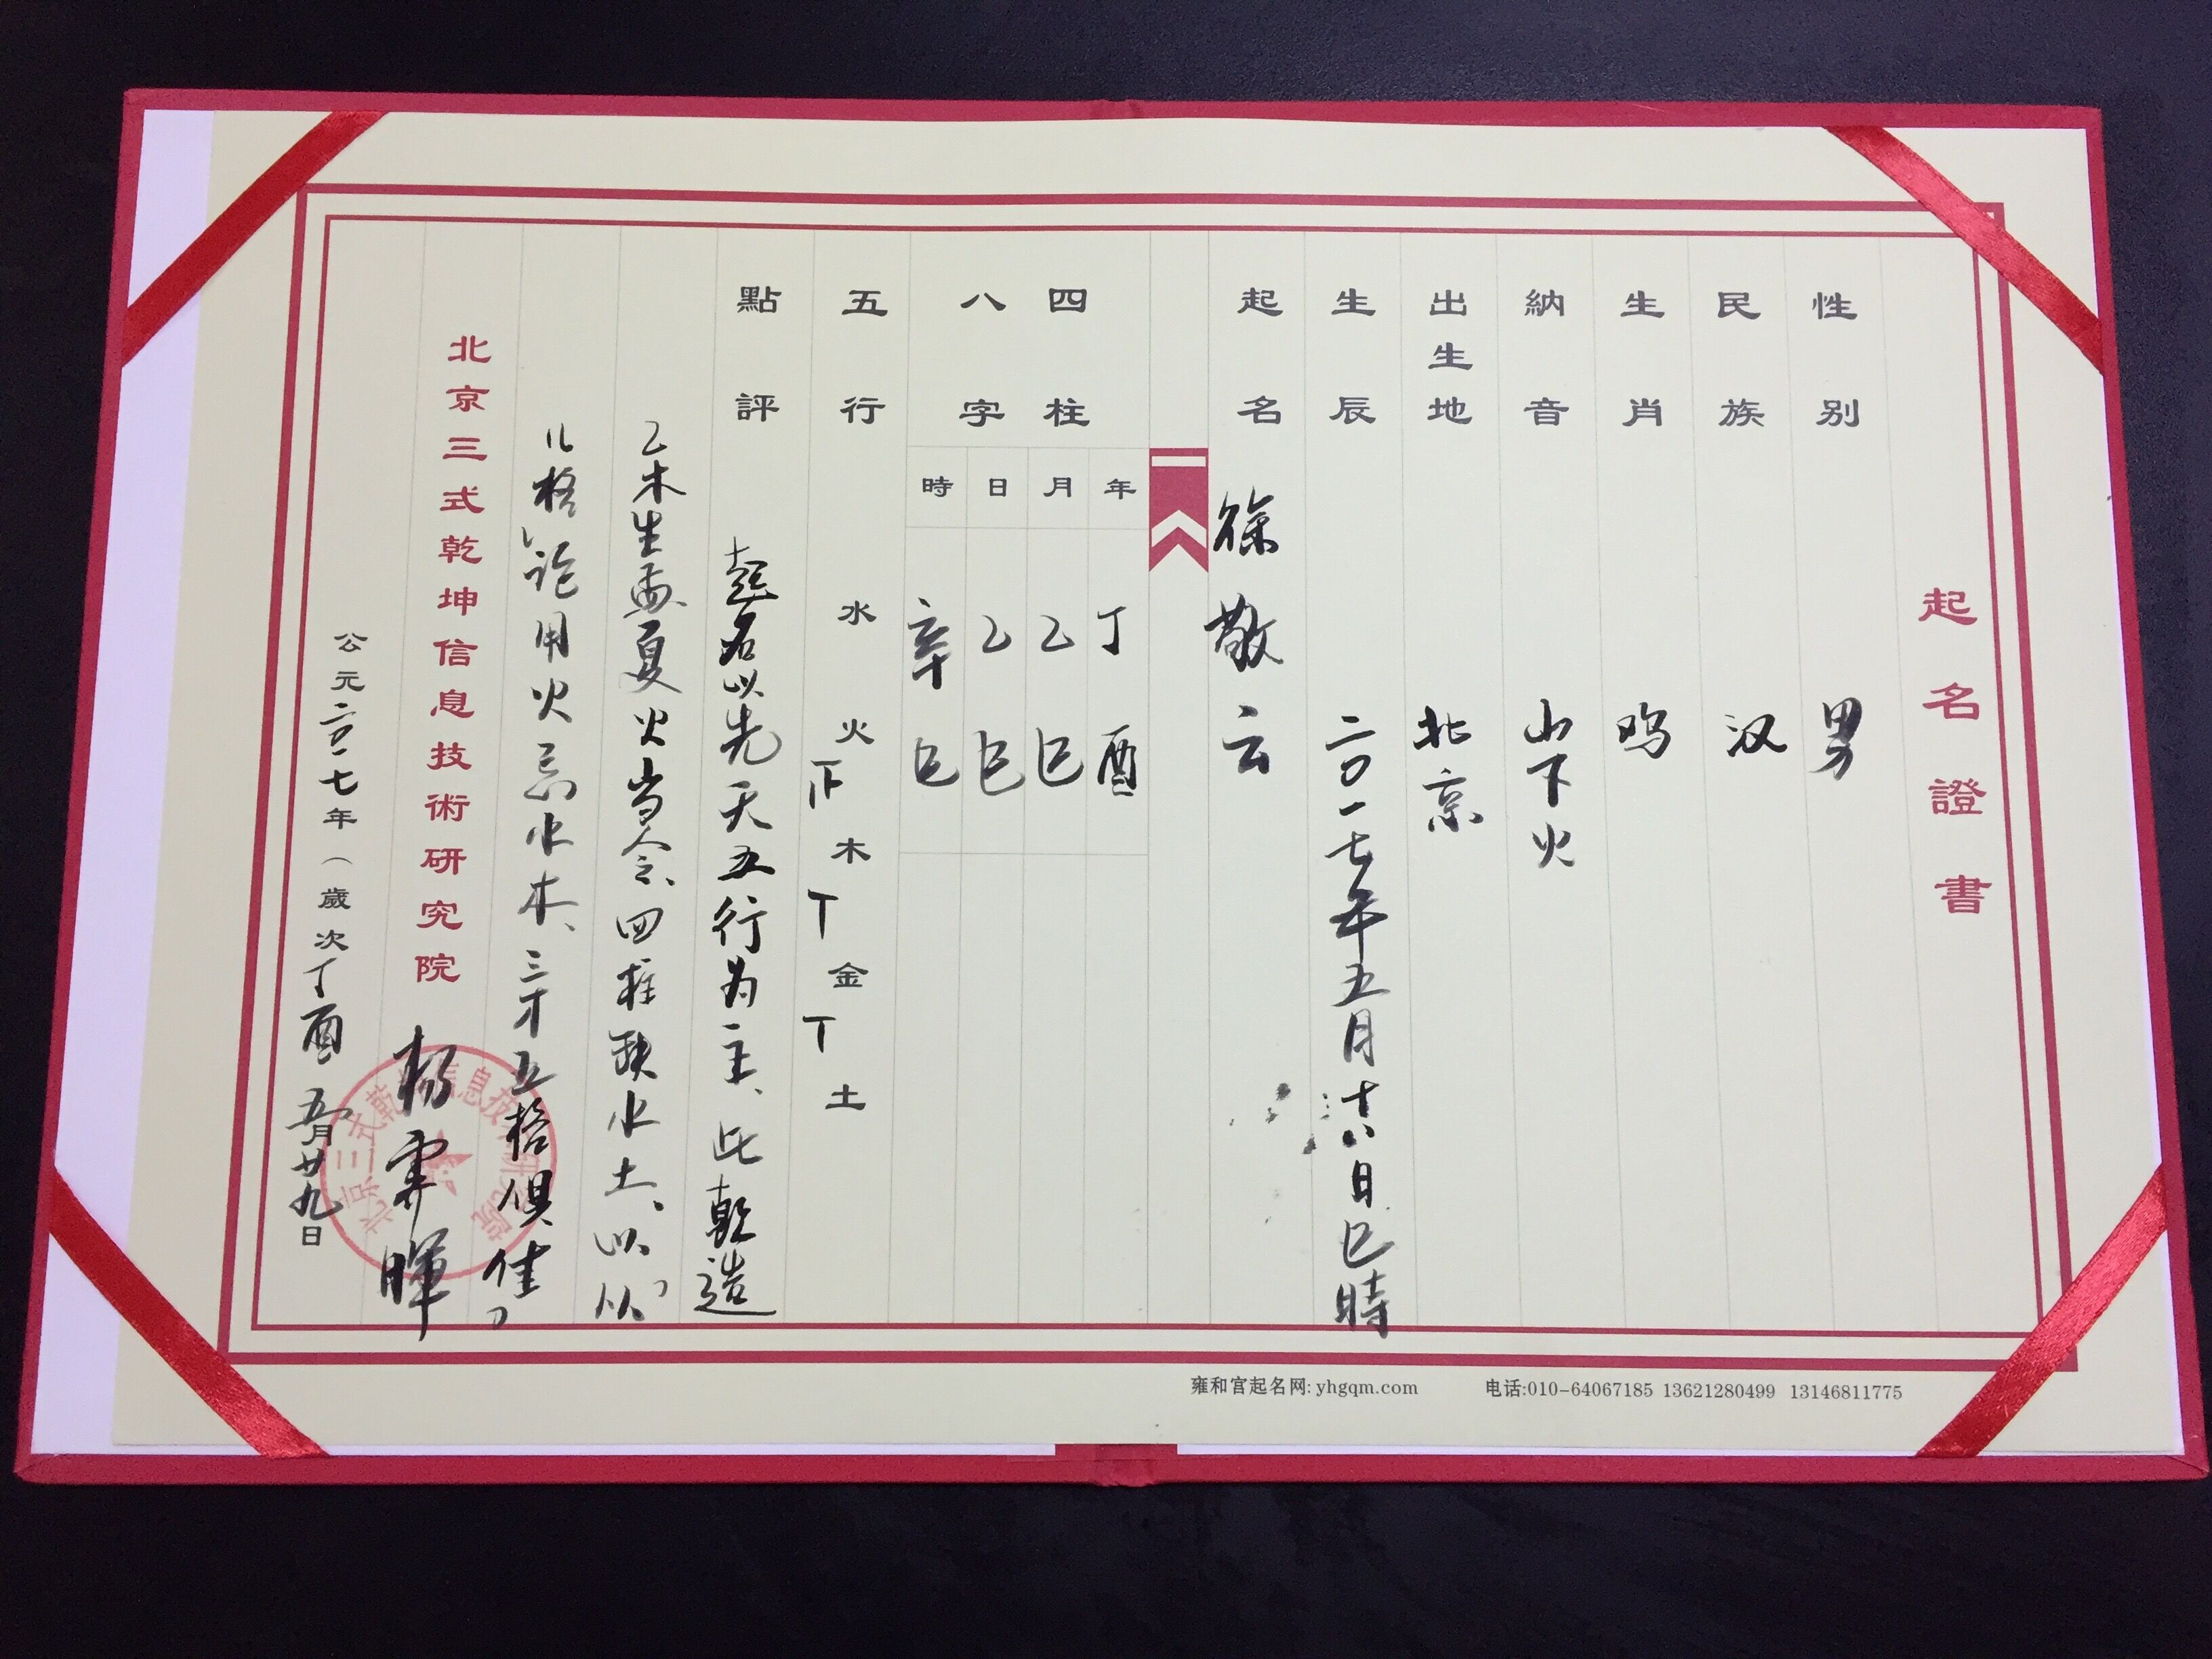 起名證書
性別 男
民族 汉
生肖 鸡
納音 山下火
出生地 北京
生辰 二〇一七年五月十八日巳時
起名 徐敬云
四柱八字
年 丁酉
月 乙巳
日 乙巳
時 辛巳
五行 水 火 木 金 土
點評 起名以先天五行为主、此乾造
乙木生孟夏火当令、四柱缺水土、以“从
儿格”论用火忌水木、三才五格俱佳，
北京三式乾坤信息技術研究院 杨霁暉
公元二〇一七年（歲次丁酉 五月廿九日
北京三式乾坤信息技術研究院
雍和宫起名网: yhgqm.com 电话:010-64067185 13621280499 13146811775